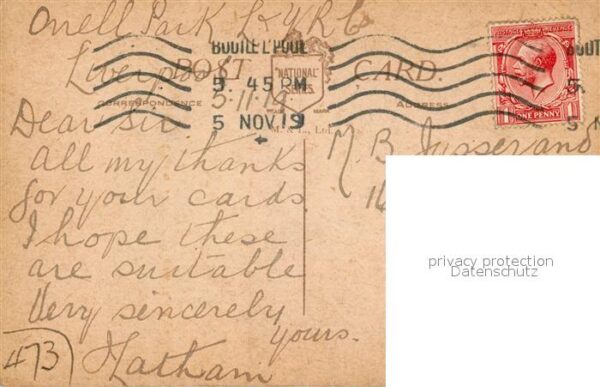 Orrell Park L & Y R L
Liverpool
5.11.19
BOOTLE L'POOL
5. 45 PM
5 NOV 19
POST CARD.
"NATIONAL" SERIES
TRADE MARK
M. & L., Ltd.
CORRESPONDENCE
ADDRESS
POSTAGE REVENUE
ONE PENNY
1 1
Dear Sir
all my thanks
for your cards
I hope these
are suitable
Very sincerely
yours.
Latham
473
M. B. Jusserand
privacy protection
Datenschutz